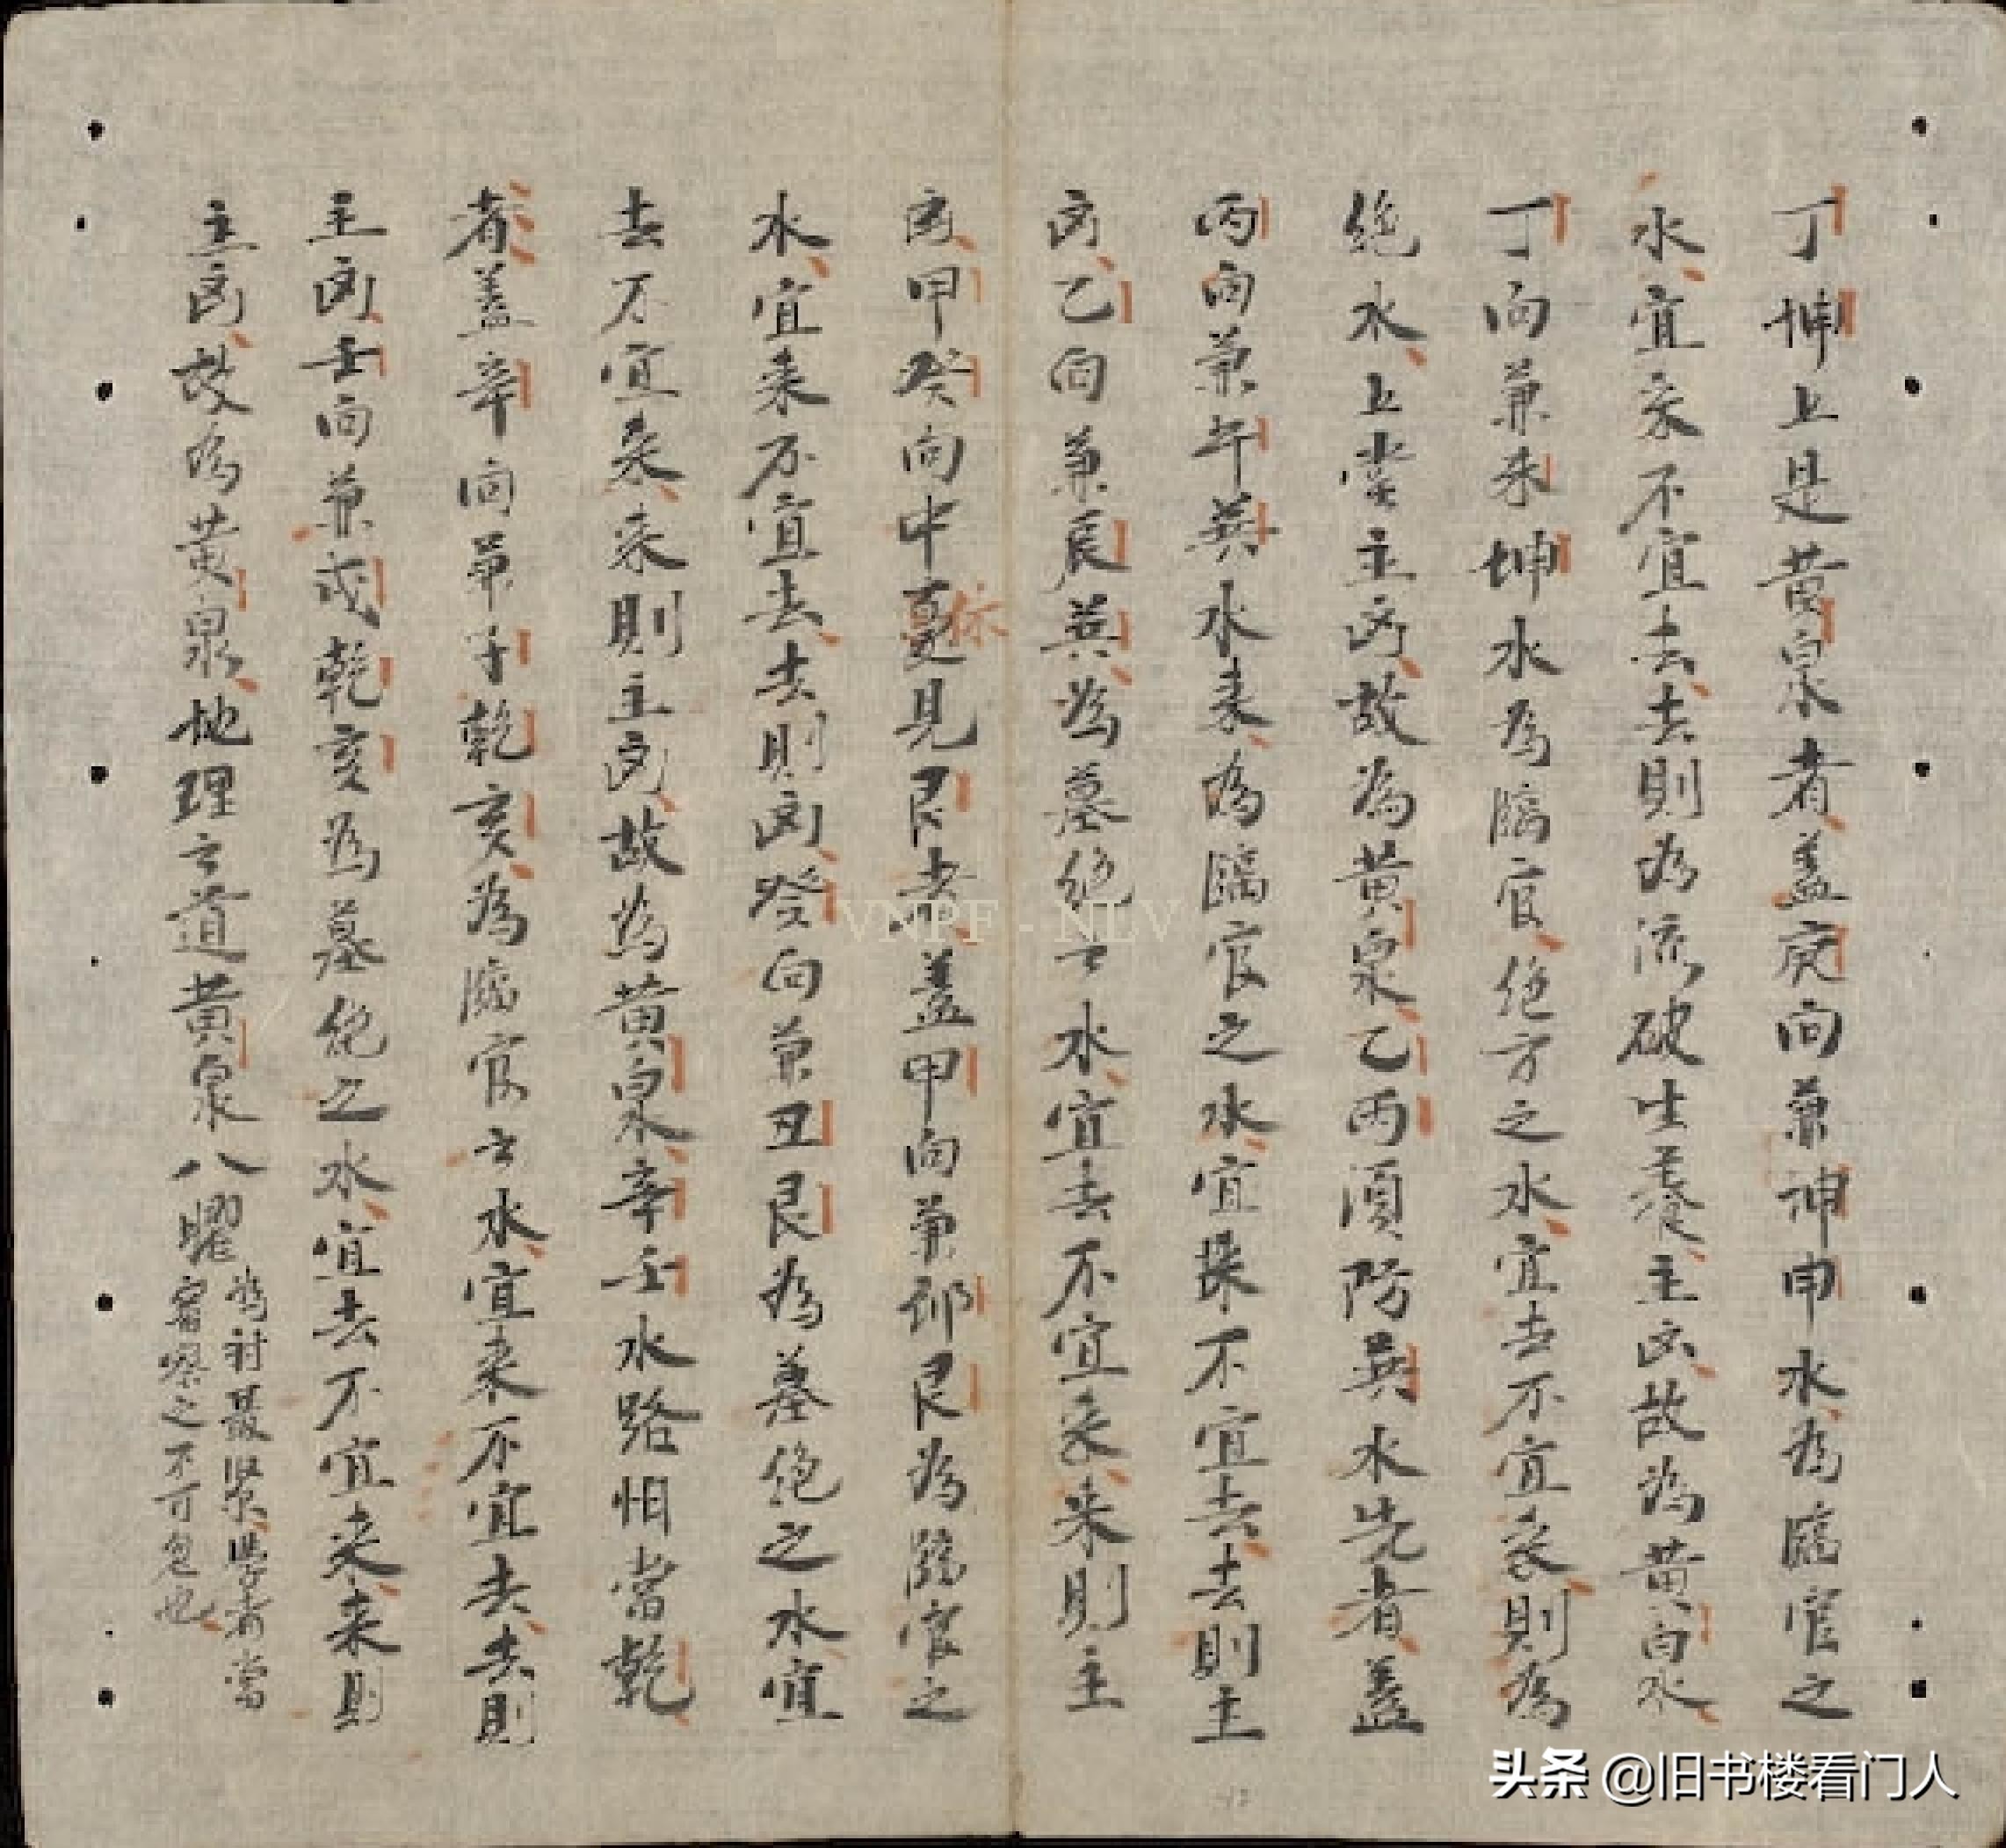 丁坤上是黄泉者盖庚向兼坤申水為臨官之
水宜来不宜去去則為流破生養主凶故為黄泉
丁向兼未坤水為臨官絶方之水宜去不宜来則為
絶水上堂主凶故為黄泉乙丙須防巽水先者盖
丙向兼午巽水来為臨官之水宜来不宜去去則主
凶乙向兼辰巽為墓絶之水宜去不宜来来則主
凶甲癸向中憂見艮者盖甲向兼卯艮為臨官之
水宜来不宜去去則凶癸向兼丑艮為墓絶之水宜
去不宜来来則主凶故為黄泉辛壬水路怕當乾
者盖辛向兼乾亥為臨官之水宜来不宜去去則
主凶壬向兼戌乾亥為墓绝之水宜去不宜来来則
主凶故為黄泉地理之道黄泉八曜
為最緊學者當
審察之不可忽也
VNPF - NLV
头条 @旧书楼看门人